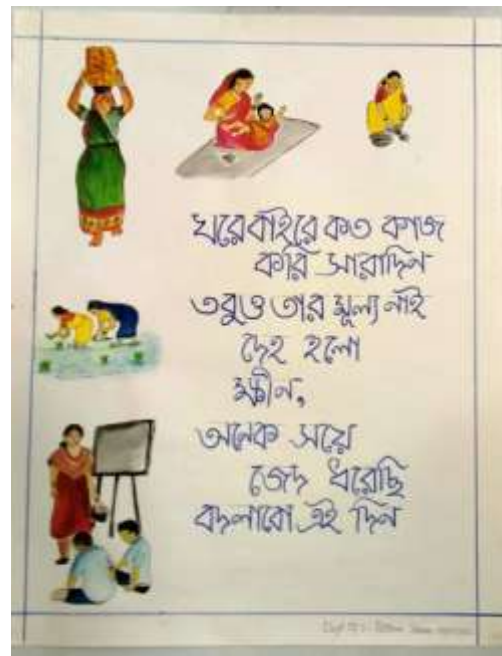 ঘরে বাইরে কত কাজ
করি সারাদিন
তবুও তার মূল্য নাই
দেহ হলো
ক্ষীন,
অনেক সয়ে
জেদ ধরেছি
বদলাবো এই দিন